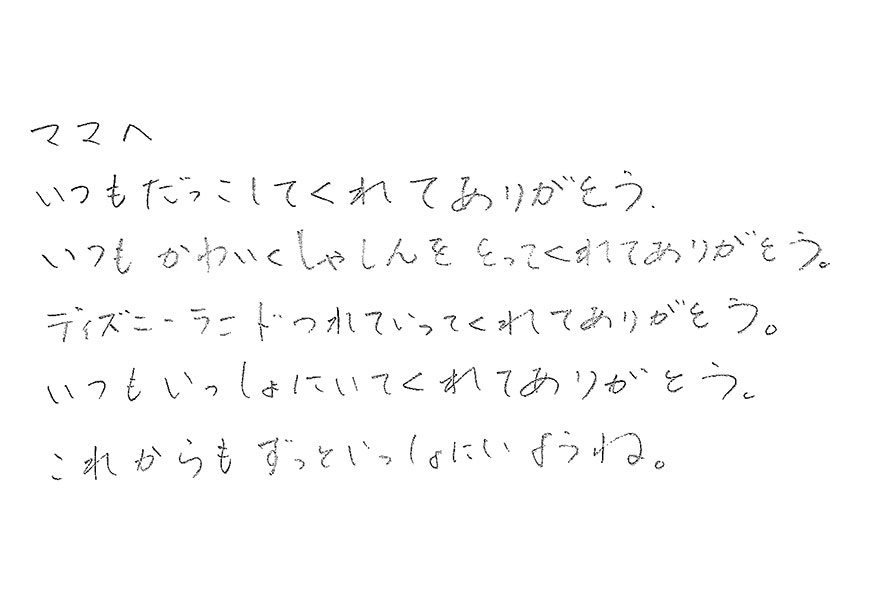 ママへ
いつもだっこしてくれてありがとう.
いつもかわいくしゃしんをとってくれてありがとう。
ディズニーランドつれていってくれてありがとう。
いつもいっしょにいてくれてありがとう。
これからもずっといっしょにいようね。